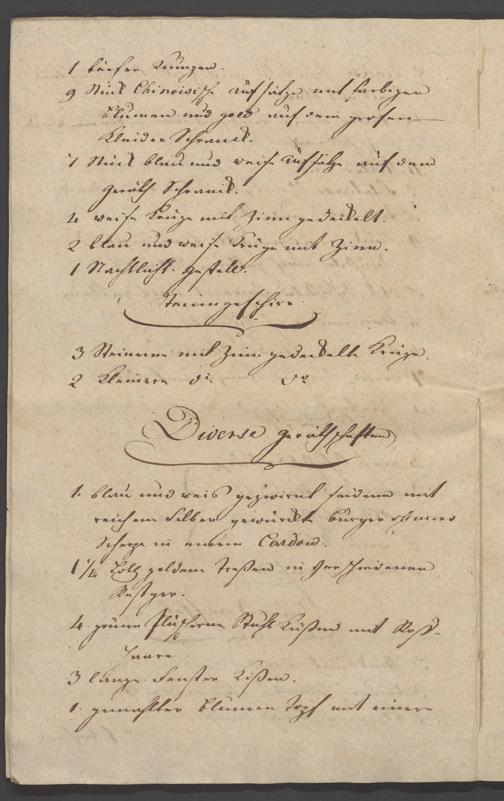 1 tiefer Kumpen.
9 Stück Chinoisische Aufsätze mit farbigen
Blumen und gold auf dem grosen
Kleider Schranck.
7 Stück blau und weise Aufsätze auf dem
geräth Schranck.
4 weise Krüge mit Zinn gedeckelt.
2 blau und weise Krüge mit Zinn.
1 Nachtlicht gestell.
Steingeschirr
3 Steinerne mit Zinn gedeckelte Krüge.
2 kleinere do. do
Diverse geräthschaften
1. blau und weis gezwirnt seidene mit
reichem Silber gewürckte Burger
Scherpe in einem Cardon.
1 1/4 goldene Treßen in verschiedenen
4 grüne Plüscherne Stuhl Kußen mit Roß-
haare
3 lange Fenster Kißen.
1. gemahlter Blumen Topf mit einem